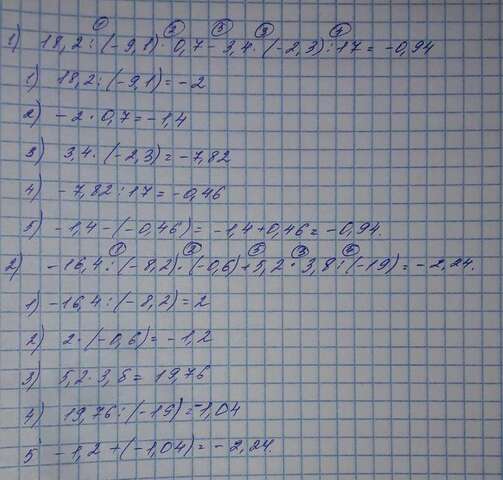 ① ② ⑤ ③ ④
1) 18,2 : (-9,1) · 0,7 - 3,4 · (-2,3) : 17 = -0,94
1) 18,2 : (-9,1) = -2
2) -2 · 0,7 = -1,4
3) 3,4 · (-2,3) = -7,82
4) -7,82 : 17 = -0,46
5) -1,4 - (-0,46) = -1,4 + 0,46 = -0,94.
① ② ⑤ ③
2) -16,4 : (-8,2) · (-0,6) + 5,2 · 3,8 : (-19) = -2,24.
1) -16,4 : (-8,2) = 2
2) 2 · (-0,6) = -1,2
3) 5,2 · 3,8 = 19,76
4) 19,76 : (-19) = -1,04
5 -1,2 + (-1,04) = -2,24.